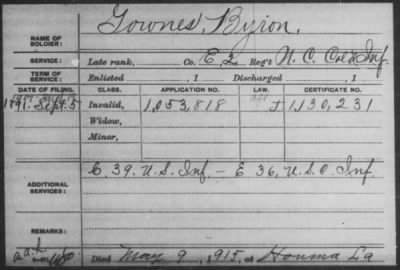 Townes, Byron.
NAME OF SOLDIER:
SERVICE: Late rank, Co. E, 2 Reg't N. C. Col'd Inf.
TERM OF SERVICE: Enlisted , 1 Discharged , 1
DATE OF FILING. CLASS. APPLICATION NO. LAW. CERTIFICATE NO.
1891. Sept. 5 Invalid, 1,053,818 1,130,231
Widow,
Minor,
ADDITIONAL SERVICES: E, 39. U.S. Inf. — E 36, U.S.C. Inf.
REMARKS:
Died May 9, 1915, at Houma La